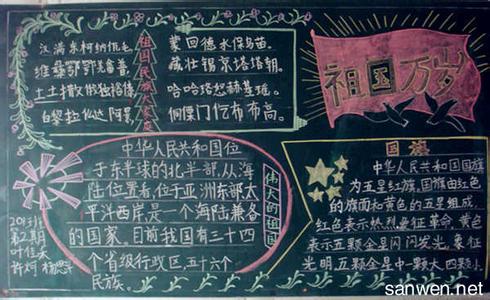 汉满东柯纳毛
土土撒俄独裕
白黎拉仫达阿景
祖国民族大家庭
蒙回德水保乌苗。
藏壮锡京塔塔朝。
哈哈塔怒赫基瑶。
侗傈门仡布布高。
祖国万岁
中华人民共和国位
于东半球的北半部,从海
陆位置看,位于亚洲东部太
平洋西岸,是一个海陆兼备
的国家。目前我国有三十四
个省级行政区,五十六个
民族。
伟大的祖国
第2期
国旗
中华人民共和国国旗
为五星红旗,国旗由红色
的旗面和黄色的五星组成,
红色表示热烈象征革命,黄色
表示五颗金星闪闪发光,象征
光明,五颗金星中一颗大四颗小
sanwen.net